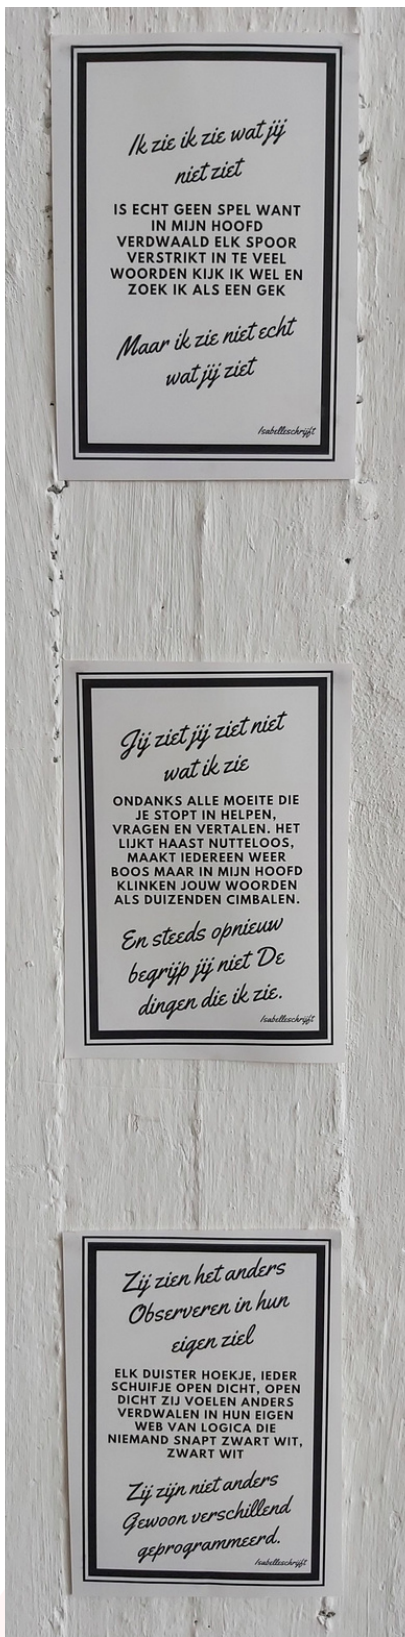 Ik zie ik zie wat jij
niet ziet
IS ECHT GEEN SPEL WANT
IN MIJN HOOFD
VERDWAALD ELK SPOOR
VERSTRIKT IN TE VEEL
WOORDEN KIJK IK WEL EN
ZOEK IK ALS EEN GEK
Maar ik zie niet echt
wat jij ziet
Isabelleschrijft
Jij ziet jij ziet niet
wat ik zie
ONDANKS ALLE MOEITE DIE
JE STOPT IN HELPEN,
VRAGEN EN VERTALEN. HET
LIJKT HAAST NUTTELOOS,
MAAKT IEDEREEN WEER
BOOS MAAR IN MIJN HOOFD
KLINKEN JOUW WOORDEN
ALS DUIZENDEN CIMBALEN.
En steeds opnieuw
begrijp jij niet De
dingen die ik zie.
Isabelleschrijft
Zij zien het anders
Observeren in hun
eigen ziel
ELK DUISTER HOEKJE, IEDER
SCHUIFJE OPEN DICHT, OPEN
DICHT ZIJ VOELEN ANDERS
VERDWALEN IN HUN EIGEN
WEB VAN LOGICA DIE
NIEMAND SNAPT ZWART WIT,
ZWART WIT
Zij zijn niet anders
Gewoon verschillend
geprogrammeerd.
Isabelleschrijft